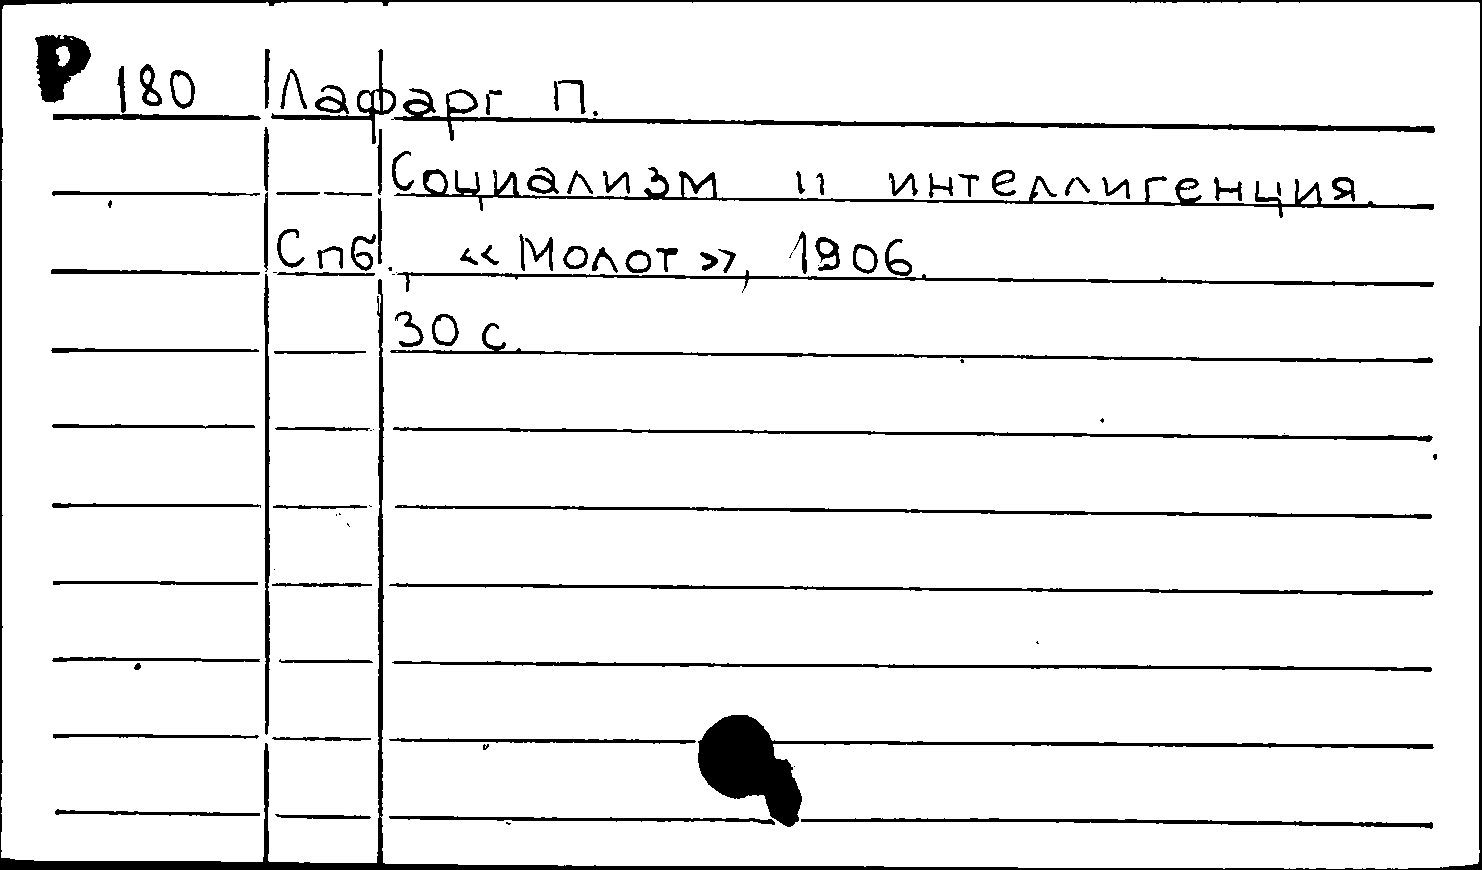 Р 180 Лафарг П.
Социализм и интеллигенция.
Спб., «Молот», 1906.
30 с.